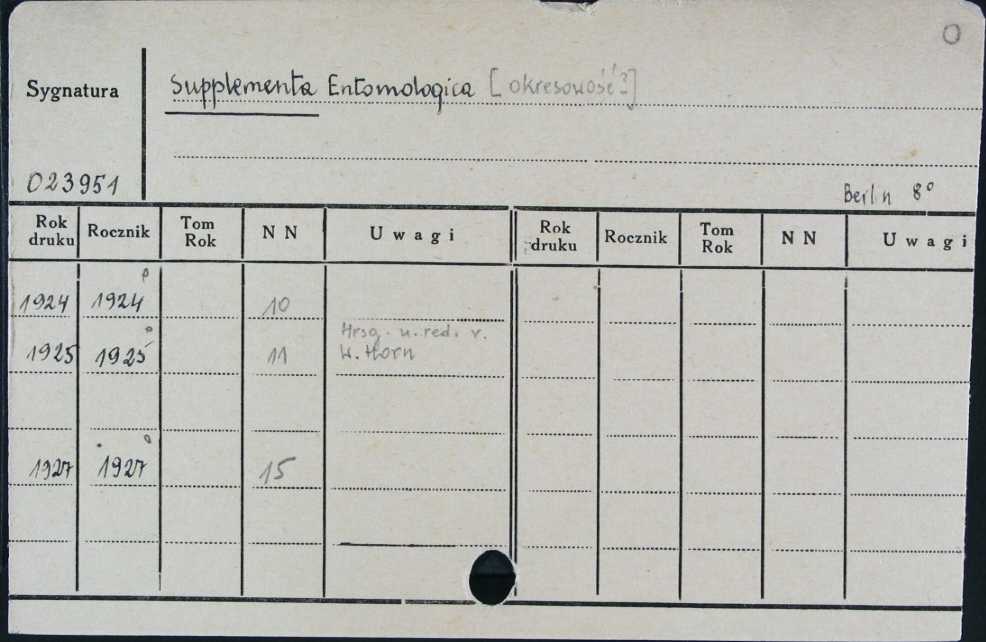 O
Sygnatura
Supplementa Entomologica [okresowość?]
023951
Berlin 8°
Rok druku Rocznik Tom Rok N N Uwagi Rok druku Rocznik Tom Rok N N Uwagi
1924 1924 10
Hrsg. u. red. v.
1925 1925 11 W. Horn
1927 1927 15